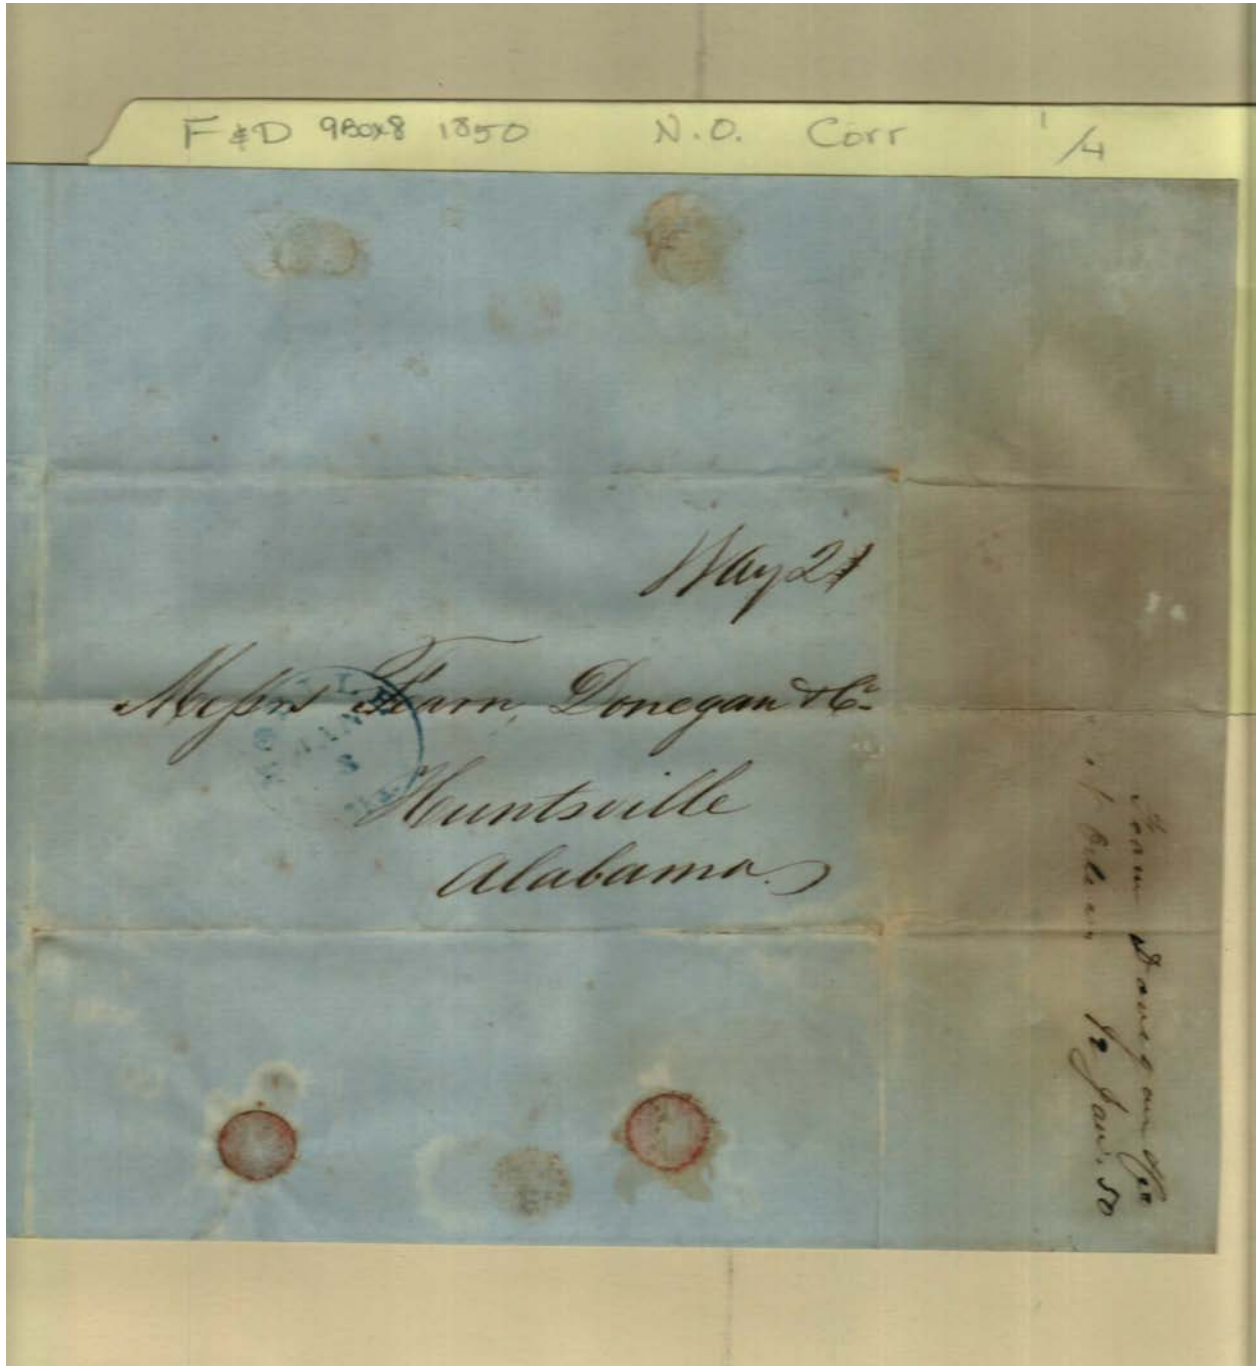 F & D 9Box8 1850 N.O. Corr 1/4
Way 21
Messrs Fearn, Donegan & Co.
Huntsville
Alabama.
MOBILE
JAN
8
Fearn Donegan & Co
12 Jan. 50